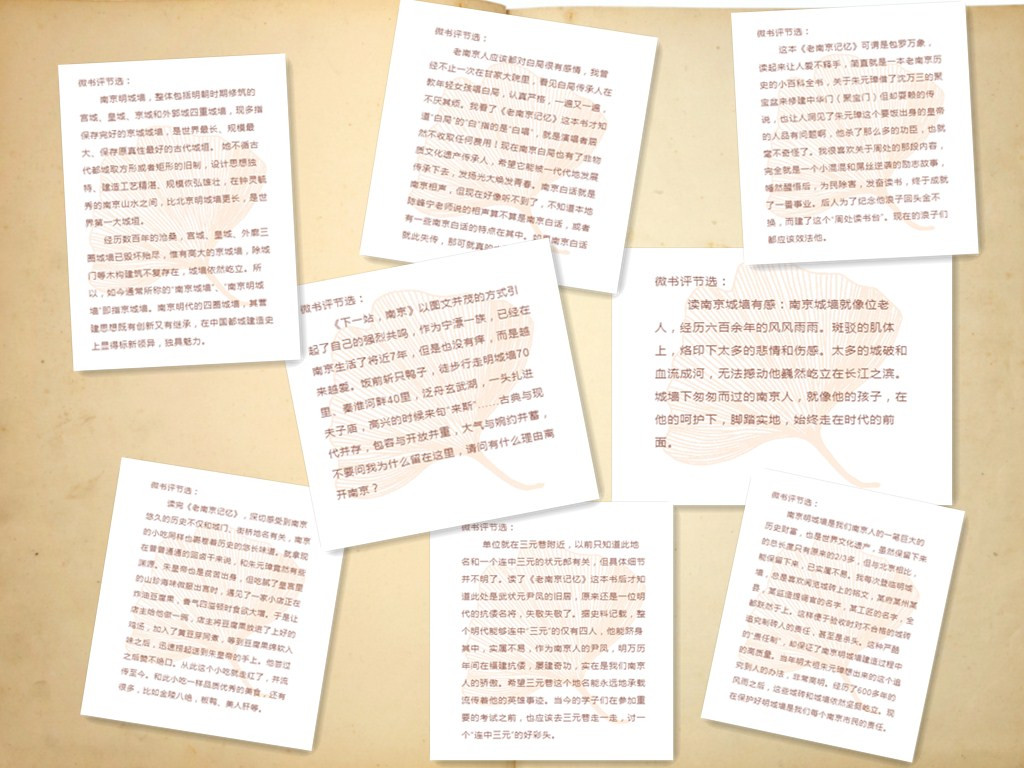 微书评节选：
南京明城墙，整体包括明朝时期修筑的
宫城、皇城、京城和外郭城四重城墙，现多指
保存完好的京城城墙，是世界最长、规模最
大、保存原真性最好的古代城垣。她不循古
代都城取方形或者矩形的旧制，设计思想独
特、建造工艺精湛、规模恢弘雄壮，在钟灵毓
秀的南京山水之间，比北京明城墙更长，是世
界第一大城垣。
经历数百年的沧桑，宫城、皇城、外廓三
圈城墙已毁坏殆尽，惟有高大的京城墙，除城
门等木构建筑不复存在，城墙依然屹立。所
以，如今通常所称的“南京城墙”、“南京明城
墙”即指京城墙。南京明代的四圈城墙，其营
建思想既有创新又有继承，在中国都城建造史
上显得标新领异，独具魅力。
微书评节选：
老南京人应该都对白局很有感情，我曾
经不止一次在甘家大院里，看见白局传承人在
教年轻女孩唱白局，认真严格，一遍又一遍，
不厌其烦。我看了《老南京记忆》这本书才知
道“白局”的“白”指的是“白唱”，就是演唱者居
然不收取任何费用！现在南京白局也有了非物
质文化遗产传承人，希望它能被一代代地发展
传承下去，发扬光大焕发青春。南京白话就是
南京相声，但现在好像听不到了，不知道本地
陈峰宁老师说的相声算不算是南京白话，或者
有一些南京白话的特点在其中。如果南京白话
就此失传，那可就真的
微书评节选：
这本《老南京记忆》可谓是包罗万象，
读起来让人爱不释手，简直就是一本老南京历
史的小百科全书，关于朱元璋借了沈万三的聚
宝盆来修建中华门（聚宝门）但却耍赖的传
说，也让人洞见了朱元璋这个要饭出身的皇帝
的人品有问题啊，他杀了那么多的功臣，也就
毫不奇怪了。我很喜欢关于周处的那段内容，
完全就是一个小混混和屌丝逆袭的励志故事，
幡然醒悟后，为民除害，发奋读书，终于成就
了一番事业。后人为了纪念他浪子回头金不
换，而建了这个“周处读书台”。现在的浪子们
都应该效法他。
微书评节选：
《下一站，南京》以图文并茂的方式引
起了自己的强烈共鸣，作为宁漂一族，已经在
南京生活了将近7年，但是也没有痒，而是越
来越爱。饭前斩只鸭子，徒步行走明城墙70
里、秦淮河畔40里，泛舟玄武湖，一头扎进
夫子庙，高兴的时候来句“来斯”……古典与现
代并存，包容与开放并重，大气与婉约并蓄，
不要问我为什么留在这里，请问有什么理由离
开南京？
微书评节选：
读南京城墙有感：南京城墙就像位老
人，经历六百余年的风风雨雨。斑驳的肌体
上，烙印下太多的悲情和伤感。太多的城破和
血流成河，无法撼动他巍然屹立在长江之滨。
城墙下匆匆而过的南京人，就像他的孩子，在
他的呵护下，脚踏实地，始终走在时代的前
面。
微书评节选：
读完《老南京记忆》，深切感受到南京
悠久的历史不仅和城门、街桥地名有关，南京
的小吃同样也裹卷着历史的悠长味道。就拿现
在普普通通的回卤干来说，和朱元璋竟然有些
渊源。朱皇帝也是贫苦出身，但吃腻了皇宫里
的山珍海味微服出宫时，遇见一家小店正在
炸油豆腐果，香气四溢顿时食欲大增。于是让
店主给他做一碗，店主将豆腐果放进了上好的
鸡汤，加入了黄豆芽同煮，等到豆腐果绵软入
味之后，迅速捞起送到朱皇帝的手上。他尝过
之后赞不绝口。从此这个小吃就走红了，并流
传至今。和此小吃一样品质优秀的美食，还有
很多，比如金陵八绝，板鸭、美人肝等。
微书评节选：
单位就在三元巷附近，以前只知道此地
名和一个连中三元的状元郎有关，但具体细节
并不明了。读了《老南京记忆》这本书后才知
道此处是武状元尹凤的旧居，原来还是一位明
代的抗倭名将，失敬失敬了。据史料记载，整
个明代能够连中“三元”的仅有四人，他能跻身
其中，实属不易，作为南京人的尹凤，明万历
年间在福建抗倭，屡建奇功，实在是我们南京
人的骄傲。希望三元巷这个地名能永远地承载
流传着他的英雄事迹。当今的学子们在参加重
要的考试之前，也应该去三元巷走一走，讨一
个“连中三元”的好彩头。
微书评节选：
南京明城墙是我们南京人的一笔巨大的
历史财富，也是世界文化遗产，虽然保留下来
的总长度只有原来的2/3多，但与北京相比，
能保留下来，已实属不易。我每次登临明城
墙，总是喜欢阅览城砖上的铭文，某府某州某
县，某监造提调官的名字，某工匠的名字，全
都跃然于上。这样便于验收时对不合格的城砖
追究制砖人的责任，甚至是杀头。这种严酷
的“责任制”，却保证了南京明城墙建造过程中
的高质量。当年明太祖朱元璋想出来的这个追
究到人的办法，非常高明。经历了600多年的
风雨之后，这些城砖和城墙依然坚挺屹立。现
在保护好明城墙是我们每个南京市民的责任。